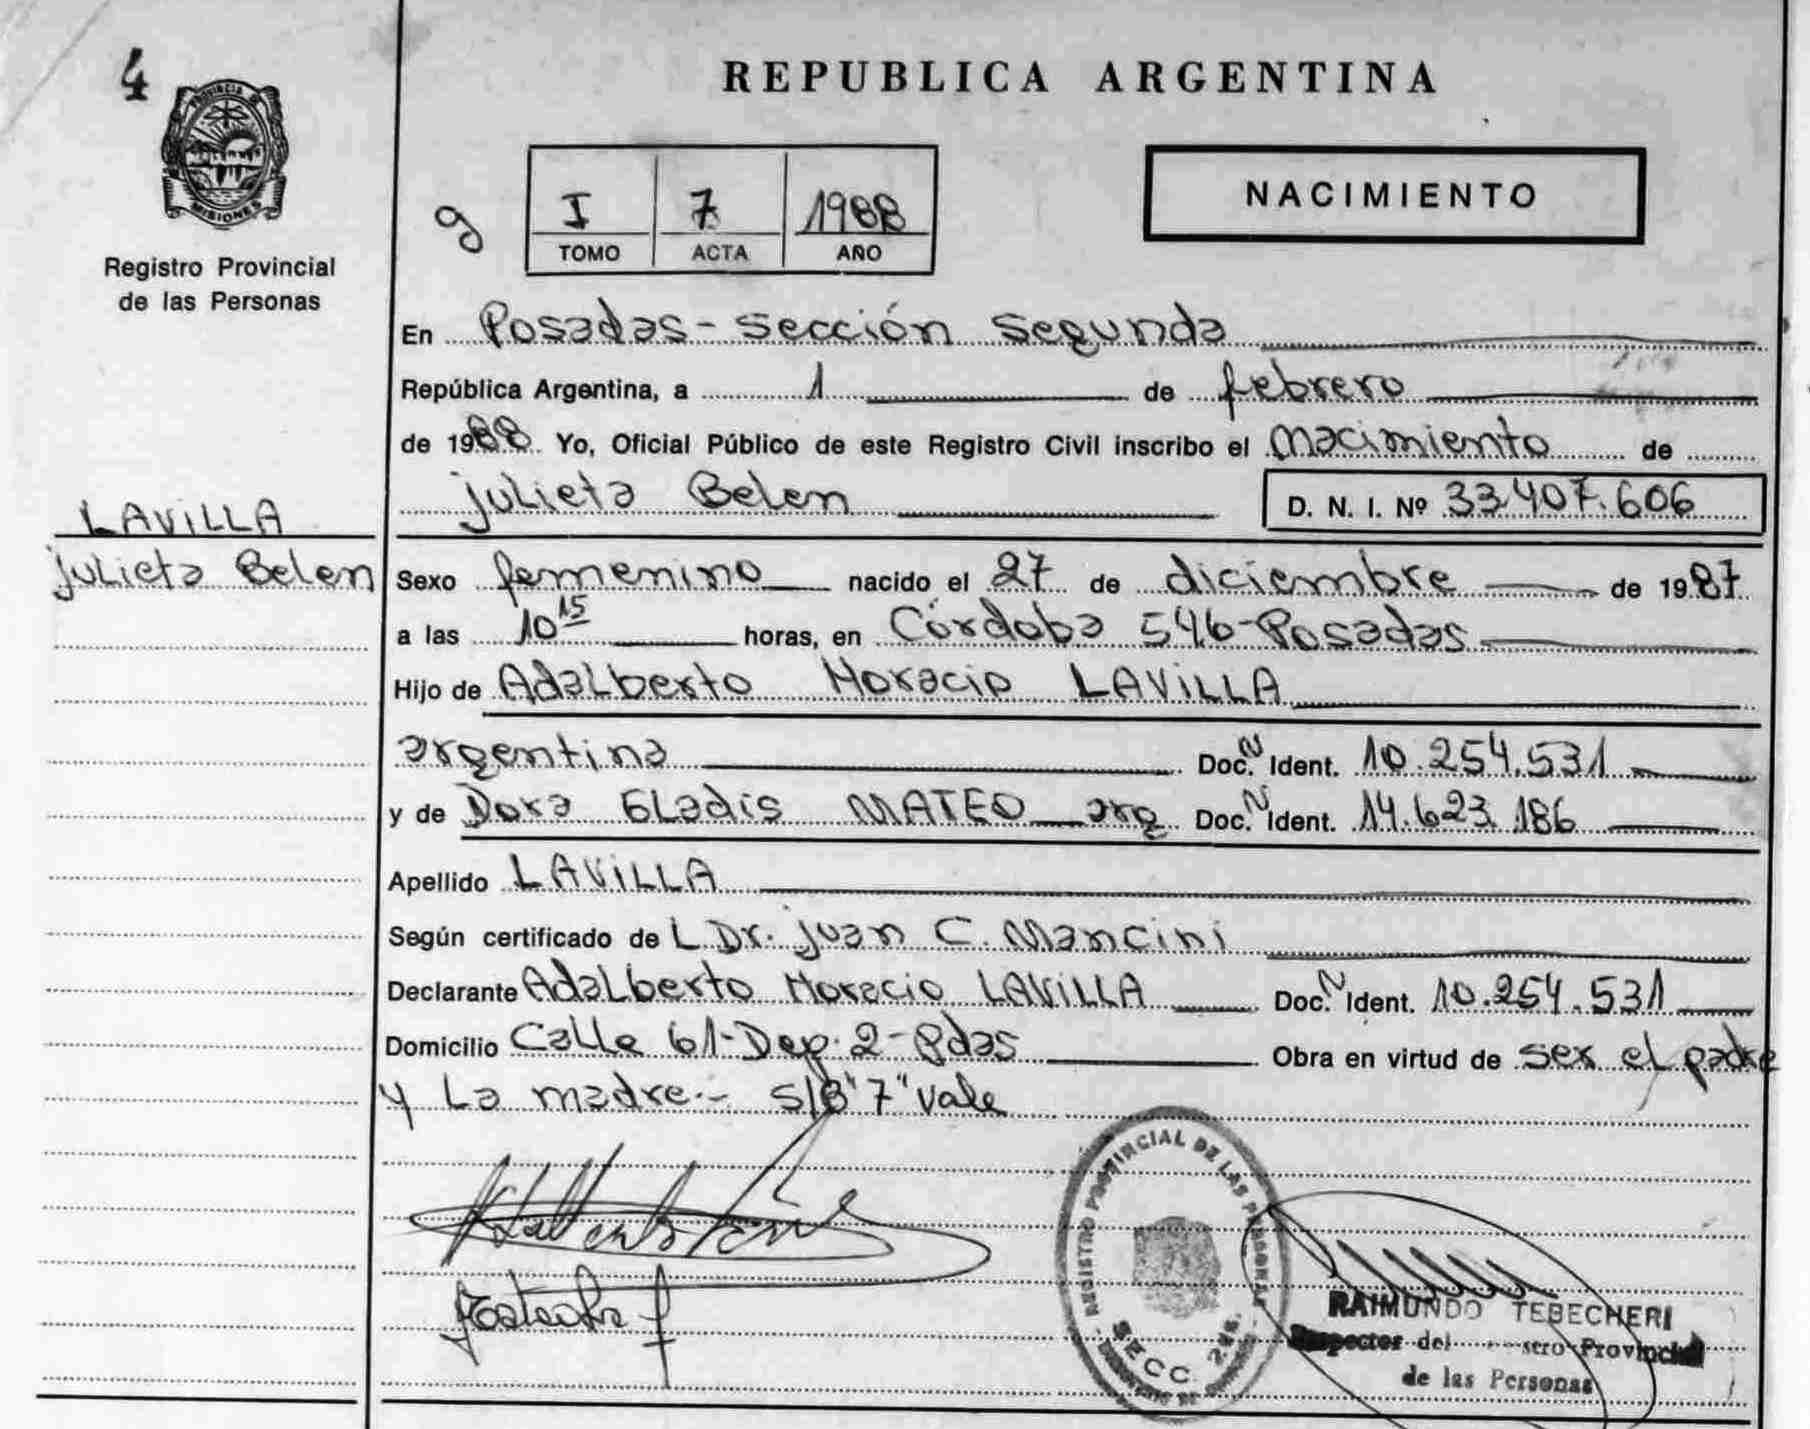 4
PROVINCIA DE
MISIONES
Registro Provincial
de las Personas
REPUBLICA ARGENTINA
9
I 7 1988
TOMO ACTA AÑO
NACIMIENTO
En Posadas - Sección Segunda
República Argentina, a 1 de febrero
de 1988 Yo, Oficial Público de este Registro Civil inscribo el Nacimiento de
Julieta Belen D. N. I. Nº 33.407.606
LAVILLA
Julieta Belen
Sexo femenino nacido el 27 de diciembre de 1987
a las 10 15 horas, en Córdoba 546 - Posadas
Hijo de Adalberto Horacio LAVILLA
argentina Doc. N Ident. 10.254.531
y de Dora Gladis MATEO arg Doc. N Ident. 14.623.186
Apellido LAVILLA
Según certificado de L Dr. Juan C. Mancini
Declarante Adalberto Horacio LAVILLA Doc. N Ident. 10.254.531
Domicilio Calle 61 - Dep. 2 - Pdas Obra en virtud de ser el padre
y La madre.- S/B "7" Vale
REGISTRO PROVINCIAL DE LAS PERSONAS
SECC. 2
RAIMUNDO TEBECHERI
Inspector del Provincial
de las Personas